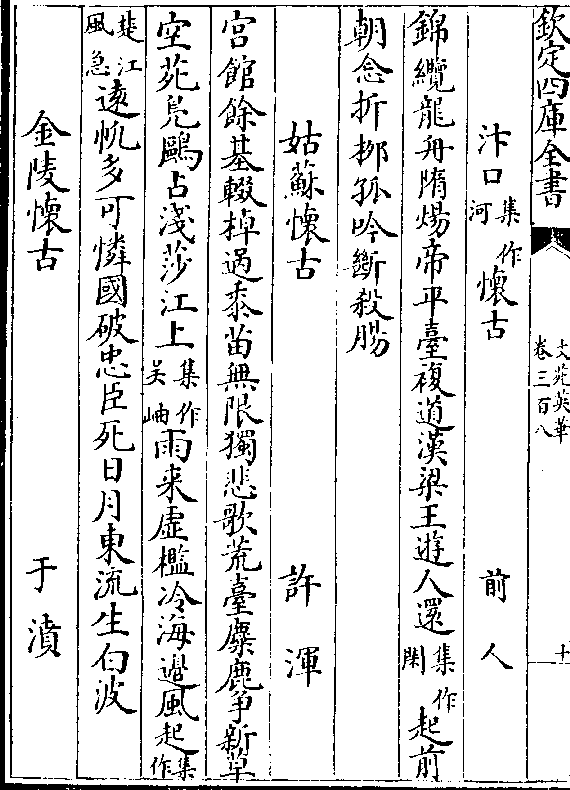 欽定四庫全書 文苑英華 卷三百八 十
汴口集作河懷古 前人
錦纜龍舟隋煬帝平臺複道漢梁王遊人還集作閑起前
朝念折桺孤吟斷殺腸
姑蘇懷古 許渾
宮館餘基輟棹過黍苗無限獨悲歌荒臺麋鹿爭新草
空苑鳬鷗占淺莎江上集作吴岫雨来虛檻冷海邉風起集作
楚江風急遠帆多可憐國破忠臣死日月東流生白波
金陵懷古 于濆